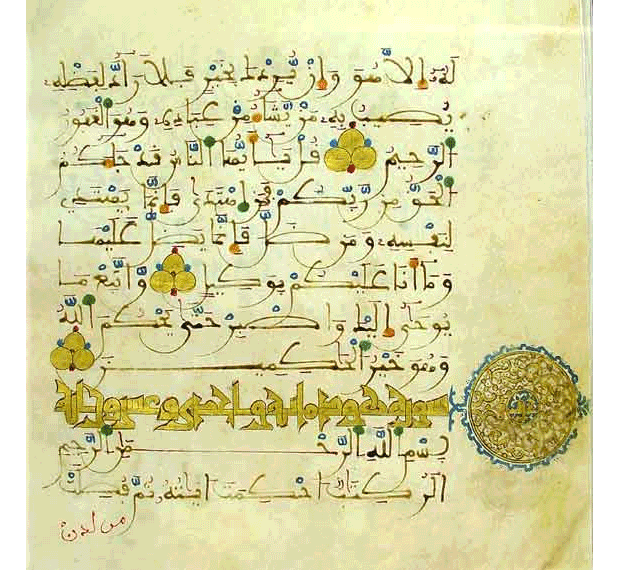 له إلا هو وإن يردك بخير فلا راد لفضله
يصيب به من يشاء من عباده وهو الغفور
الرحيم قل يأيها الناس قد جاكم
الحق من ربكم فمن اهتدى فإنما يهتدي
لنفسه ومن ضل فإنما يضل عليها
وما أنا عليكم بوكيل واتبع ما
يوحى إليك واصبر حتى يحكم الله
وهو خير الحكمين
سورة هود مائة واحدى وعشرون
بسم الله الرحمن الرحيم
الر كتب احكمت ايته ثم فصلت
من لدن